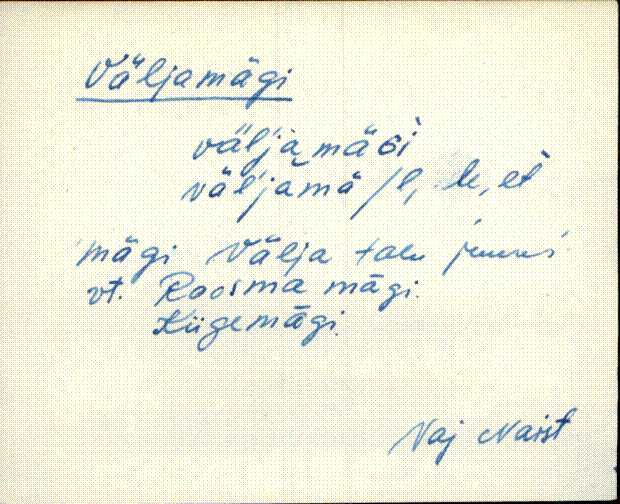 Väljamägi
väljamäGi
väljamä /l, le, et
mägi Välja talu juures
vt. Roosma mägi.
Kiigemägi.
Naist